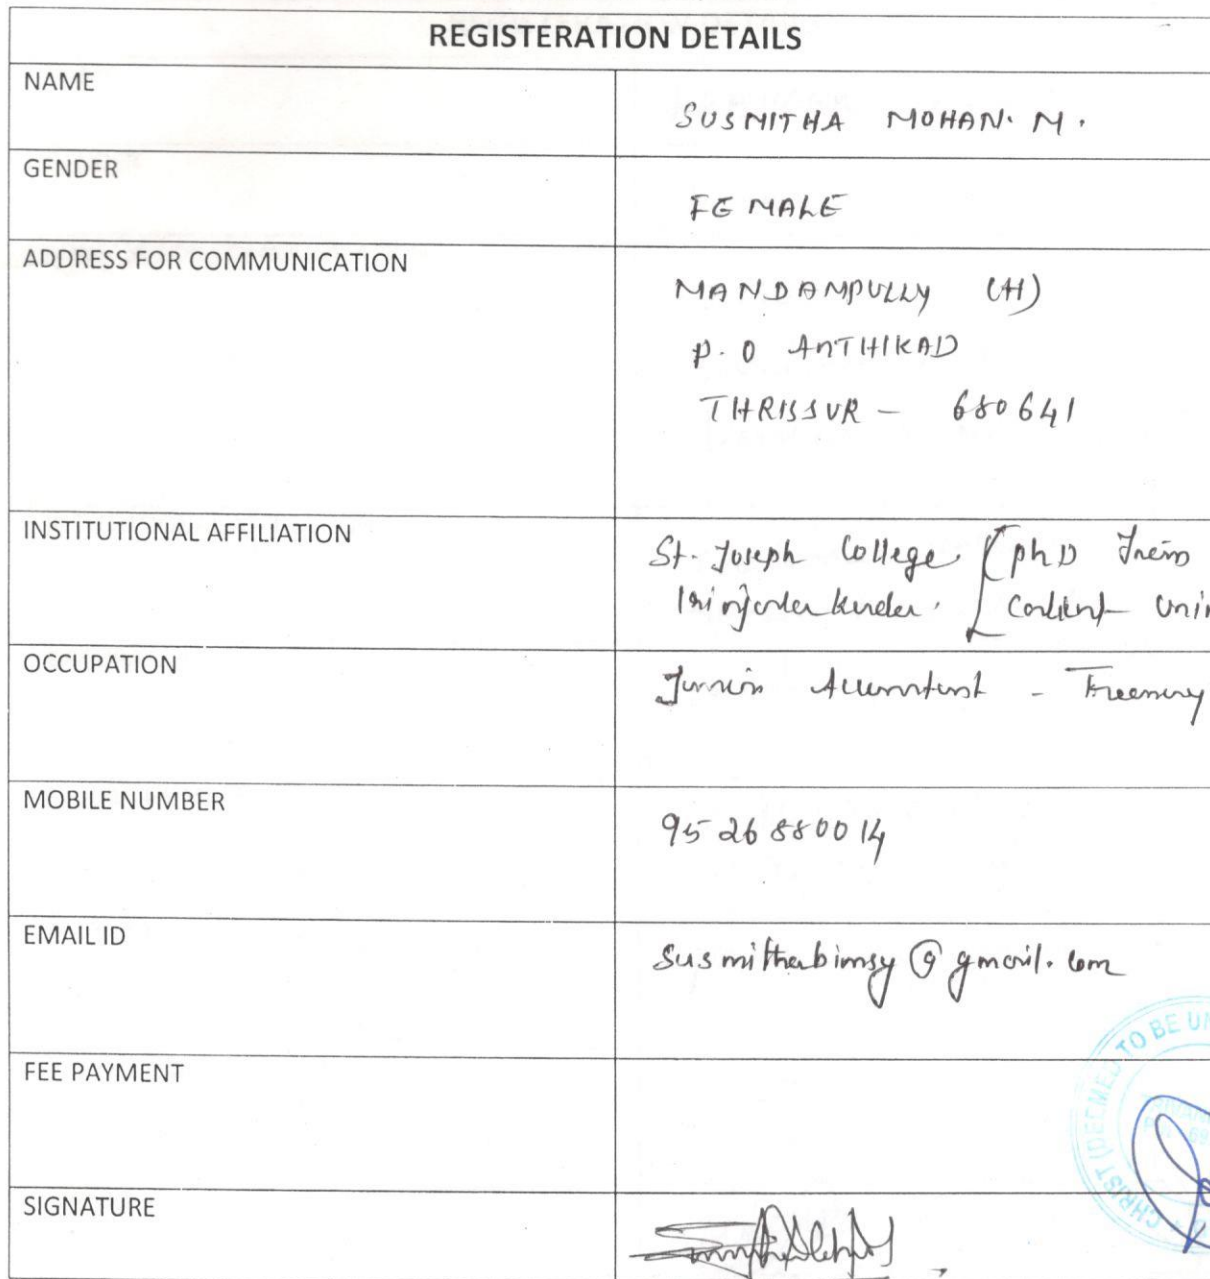 REGISTERATION DETAILS
NAME
SUSMITHA MOHAN. M.
GENDER
FEMALE
ADDRESS FOR COMMUNICATION
MANDAMPULLY (H)
P.O ANTHIKAD
THRISSUR - 680641
INSTITUTIONAL AFFILIATION
St. Joseph College. (phD
OCCUPATION
Junior Accountant -
MOBILE NUMBER
9526880014
EMAIL ID
susmithabimsy@gmail.com
FEE PAYMENT
TO BE UN
CHRIST (DEEMED
SIGNATURE